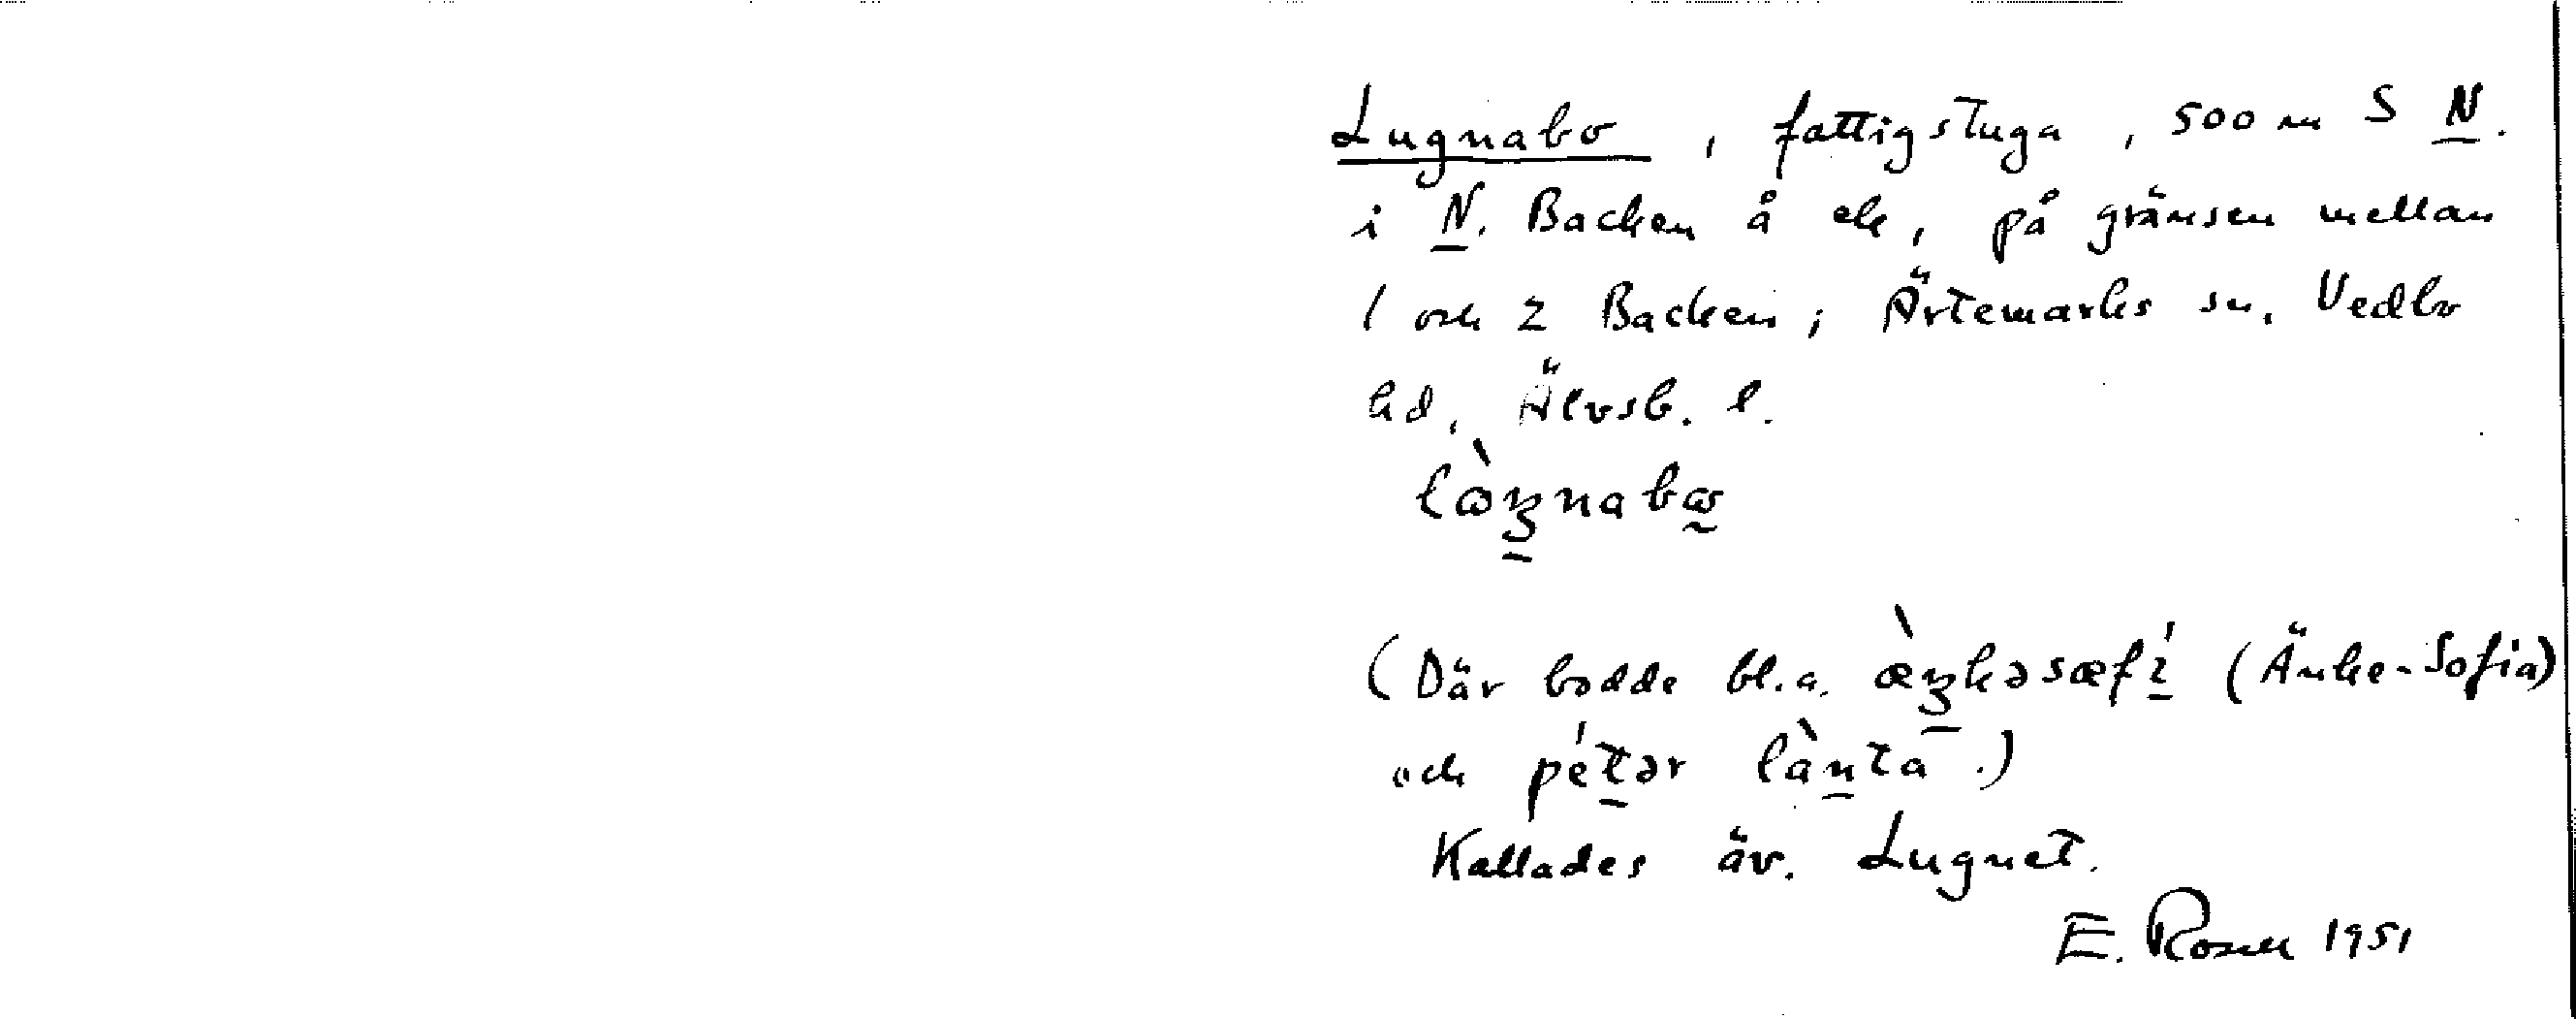 Lugnabo, fattigstuga, 500 m S N.
i N. Backen å ek, på gränsen mellan
1 och 2 Backen; Ärtemarks sn. Vedbo
hd, Älvsb. l.
(Där bodde bl.a. (Änke-Sofia)
och pétər lànta.)
Kallades äv. Lugnet.
E. Rosell 1951